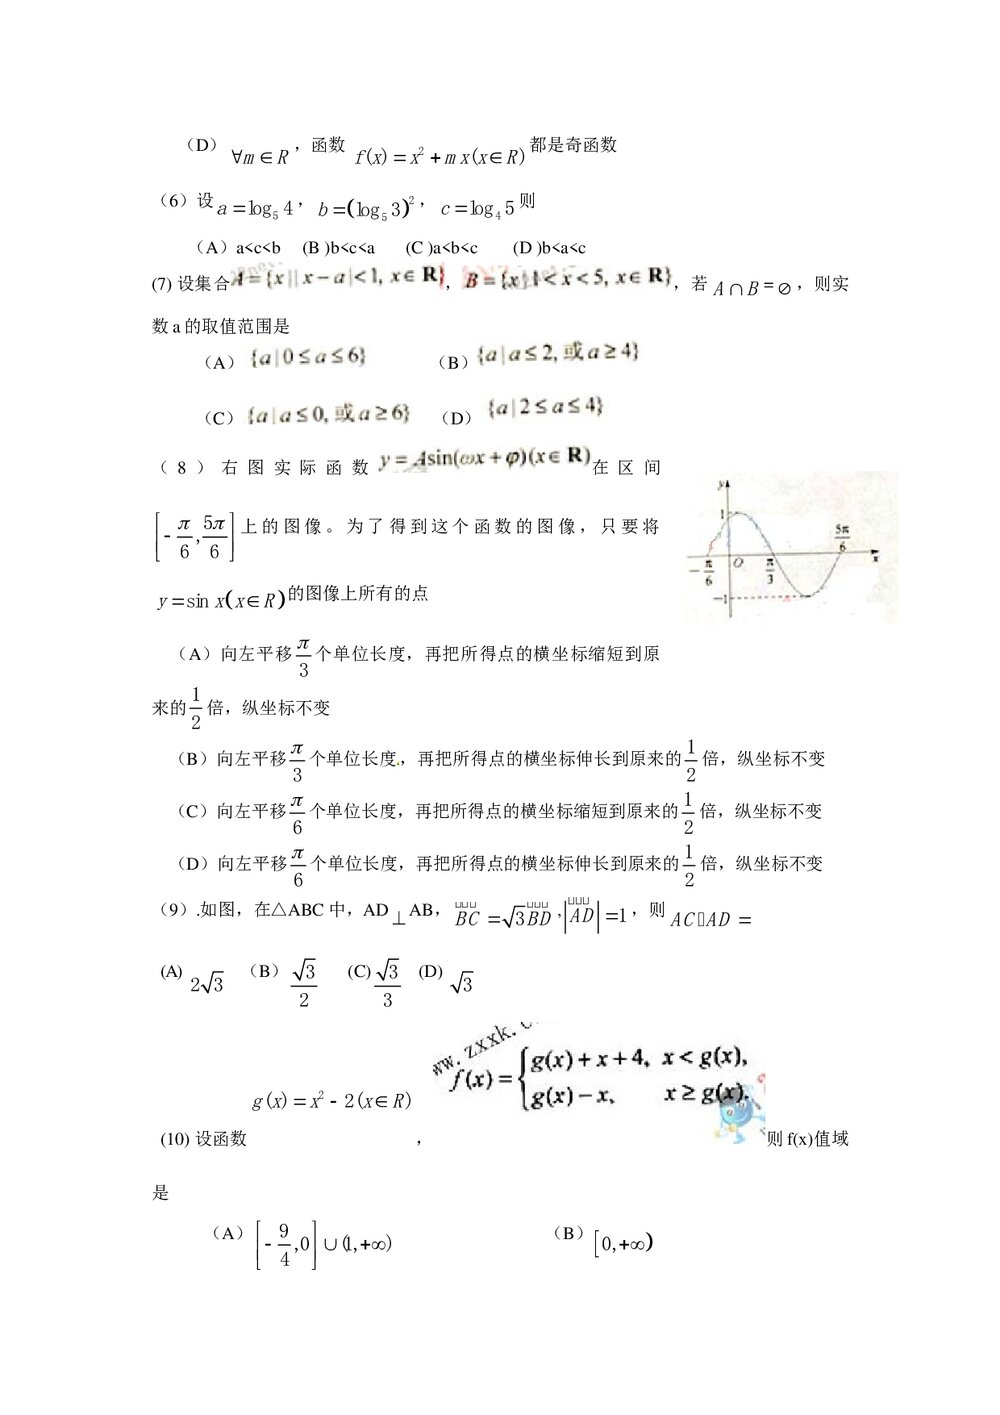 （D） ∀m∈R ，函数 f(x)=x²+mx(x∈R) 都是奇函数
（6）设 a=log₅4 ， b=(log₅3)² ， c=log₄5 则
（A）a<c<b （B )b<c<a （C )a<b<c （D )b<a<c
(7) 设集合 A={x||x-a|<1, x∈R} ， B={x|1<x<5, x∈R} ，若 A∩B=∅ ，则实
数 a 的取值范围是
（A） {a|0≤a≤6} （B） {a|a≤2,或a≥4}
（C） {a|a≤0,或a≥6} （D） {a|2≤a≤4}
（8）右图实际函数 y=Asin(ωx+φ)(x∈R) 在区间
y
1
5π/6
-π/6 O π/3 x
-1
[-π/6, 5π/6] 上的图像。为了得到这个函数的图像，只要将
y=sin x(x∈R) 的图像上所有的点
（A）向左平移 π/3 个单位长度，再把所得点的横坐标缩短到原
来的 1/2 倍，纵坐标不变
（B）向左平移 π/3 个单位长度，再把所得点的横坐标伸长到原来的 1/2 倍，纵坐标不变
（C）向左平移 π/6 个单位长度，再把所得点的横坐标缩短到原来的 1/2 倍，纵坐标不变
（D）向左平移 π/6 个单位长度，再把所得点的横坐标伸长到原来的 1/2 倍，纵坐标不变
（9）.如图，在△ABC 中，AD⊥AB， BC=√3BD , |AD|=1 ，则 AC▯AD =
(A) 2√3 （B） √3/2 (C) √3/3 (D) √3
ww.zxxk.
(10) 设函数 g(x)=x²-2(x∈R) ， f(x)={g(x)+x+4, x<g(x), g(x)-x, x≥g(x). 则 f(x)值域
是
（A） [-9/4,0]∪(1,+∞) （B） [0,+∞)